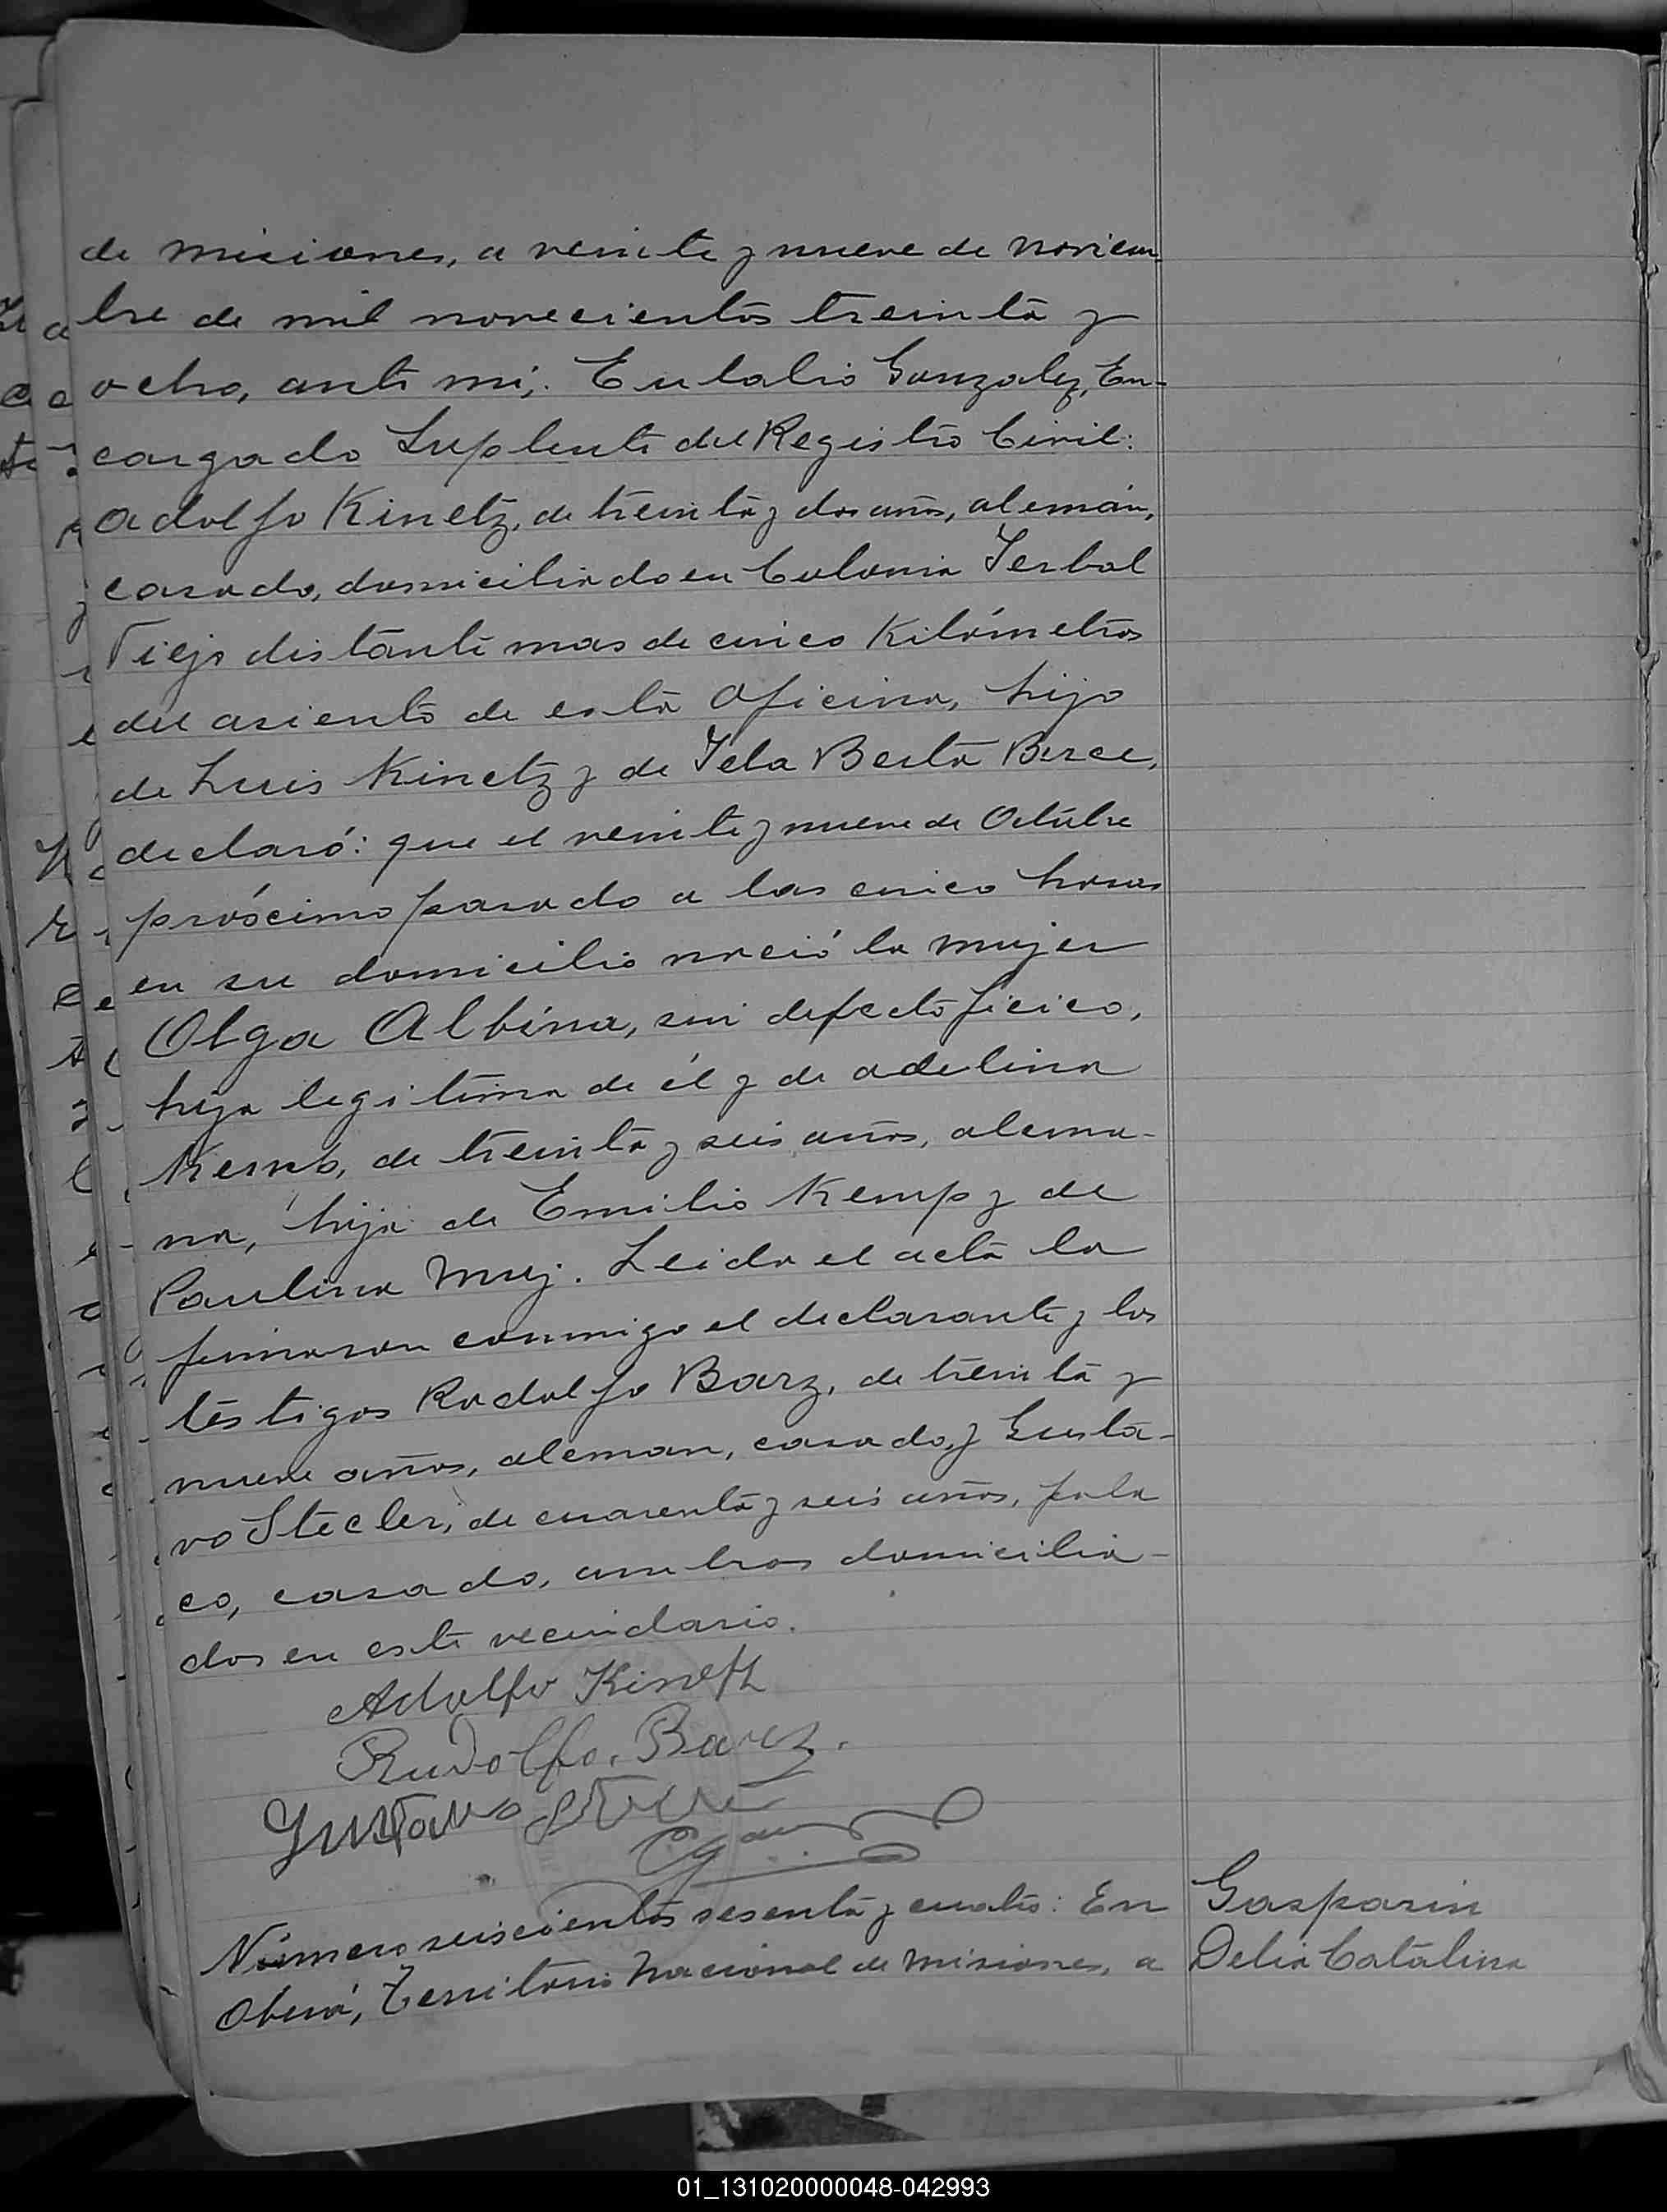 de misiones, a veinte y nueve de noviem
bre de mil novecientos treinta y
ocho, ante mi; Eulalio Gonzalez, En-
cargado Suplente del Registro Civil:
Adolfo Kinetz, de treinta y dos años, alemán,
casado, domiciliado en Colonia Yerbal
Viejo distante mas de cinco Kilómetros
del asiento de esta Oficina, hijo
de Luis Kinetz y de Berta
declaró: que el veinte y nueve de Octubre
próscimo pasado a las cinco horas
en su domicilio nació la mujer
Olga Albina, sin defecto ficico,
hija legitima de él y de adelina
de treinta y seis años, alema-
na, hija de Emilio Kemp y de
Paulina Muj. Leida el acta la
firmaron conmigo el declarante y los
testigos Rodolfo Barz, de treinta y
nueve años, aleman, casado, y Gusta-
vo Stecler, de cuarenta y seis años, pola
co, casado, ambos domicilia-
dos en este vecindario.
Adolfo Kinetz
Rudolfo. Barz.
Gustavo
Número seiscientos sesenta y cuatro: En
Gasparin
Oberá, Territorio Nacional de Misiones, a
Delia Catalina
01_131020000048-042993